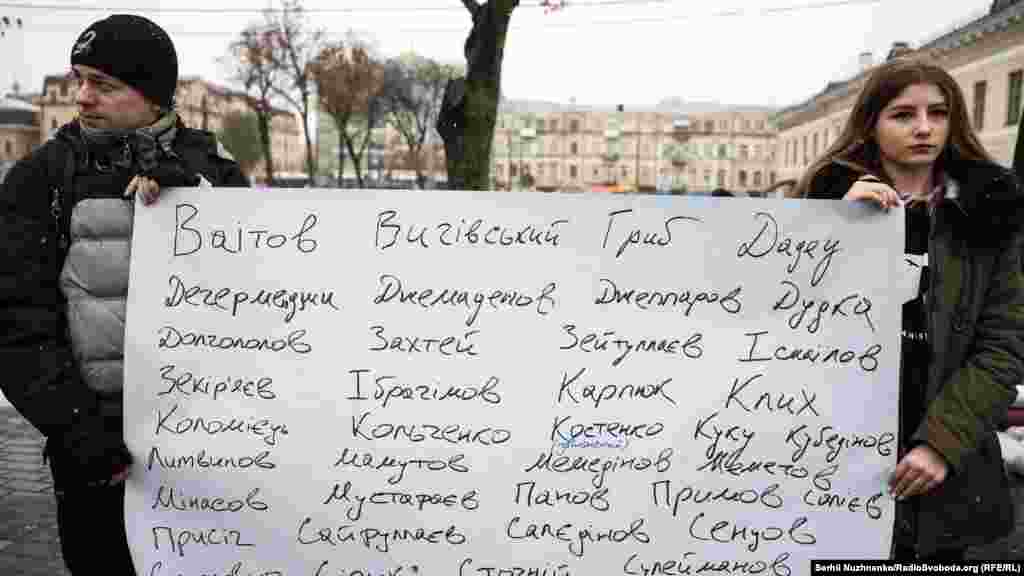 Ваітов Вигівський Гриб Дадеу
Дегермеджи Джемаденов Джеппаров Дудка
Долгополов Захтей Зейтуллаєв Ісмаілов
Зекір'яєв Ібрагімов Карпюк Клих
Коломієць Кольченко Костенко Куку Кубедінов
Литвинов Мамутов Мемедінов Меметов
Мінасов Мустафаєв Панов Примов
Присіч Сайфуллаєв Салєдінов Сенцов
Стогній Сулейманов
Serhii Nuzhnenko/RadioSvoboda.org (RFE/RL)